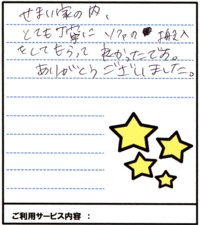 せまい家の内、
とても丁寧に ソファの 搬入
をしてもらって よかったです。
ありがとうございました。
ご利用サービス内容 ：